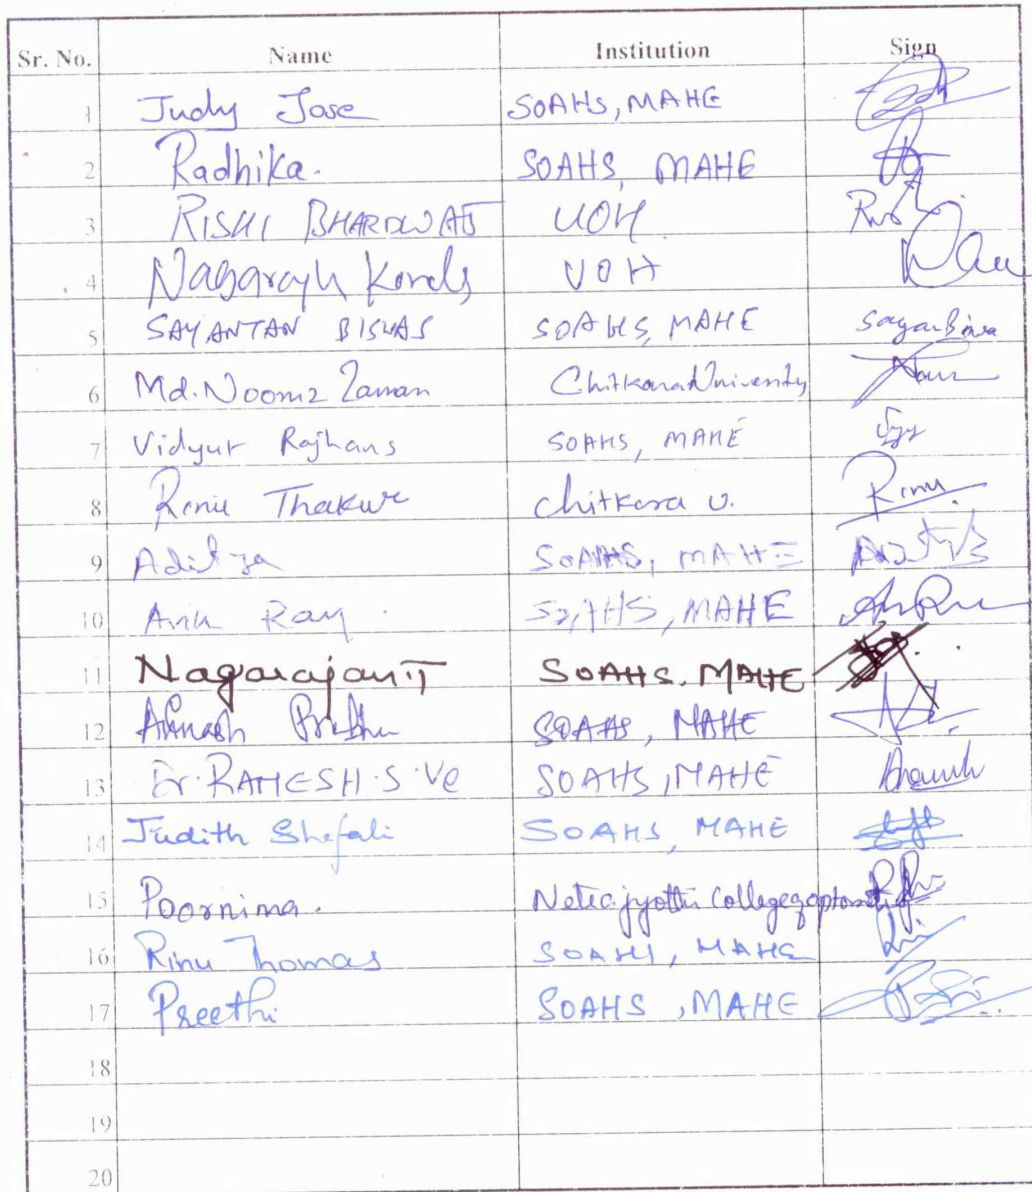 Sr. No. Name Institution Sign
1 Judy Jose SOAHS, MAHE
2 Radhika. SOAHS, MAHE
3 RISHI BHARDWAJ UOH
4 Nagaraju UOH
5 SAYANTAN BISWAS SOAHS, MAHE
6 Md. Zaman Chitkara University
7 Vidyut Rajhans SOAHS, MAHE
8 Renu Thakur Chitkara U. Renu
9 Aditya SOAHS, MAHE
10 Ray SOAHS, MAHE
11 Nagarajan.T SOAHS. MAHE
12 Abinash Prabhu SOAHS, MAHE
13 Dr. RAMESH.S.Ve SOAHS, MAHE
14 Judith Shefali SOAHS, MAHE
15 Poornima. Netrajyothi College of optometry
16 Rinu Thomas SOAHS, MAHE
17 Preethi SOAHS, MAHE
18
19
20